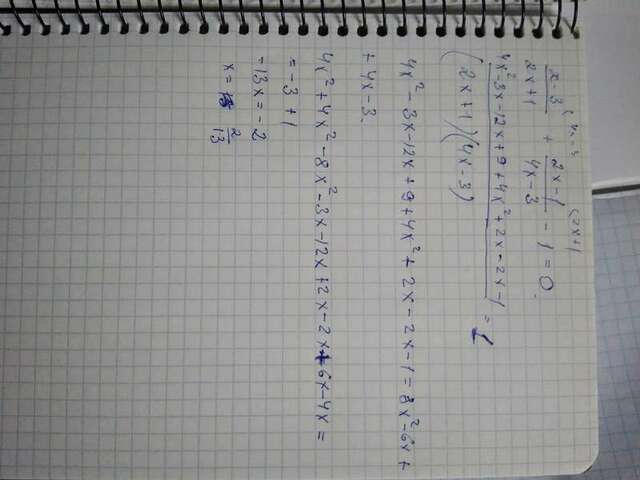 (4x-3 (2x+1
x-3/2x+1 + 2x-1/4x-3 - 1 = 0.
4x²-3x-12x+9+4x²+2x-2x-1/(2x+1)(4x-3) = 1
4x²-3x-12x+9+4x²+2x-2x-1=8x²-6x+
+4x-3.
4x²+4x²-8x²-3x-12x+2x-2x+6x-4x=
=-3+1
-13x=-2
x= 2/13